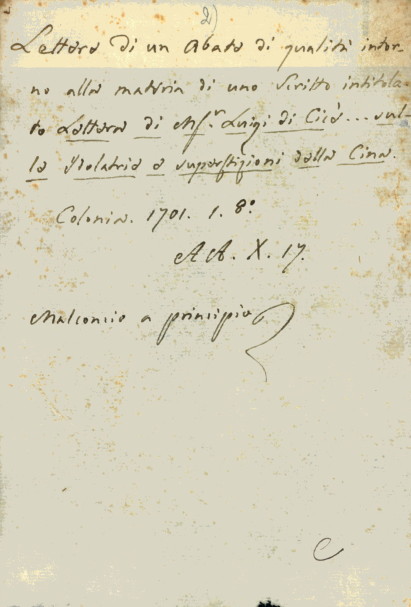 2)
Lettera di un Abate di qualità intor-
no alla materia di uno Scritto intitola-
to Lettera di Msr. Luigi di Cicè... sul-
le Idolatrie e superstizioni della Cina.
Colonia. 1701. 1. 8º.
AA. X. 17.
Malconcio a principio
C